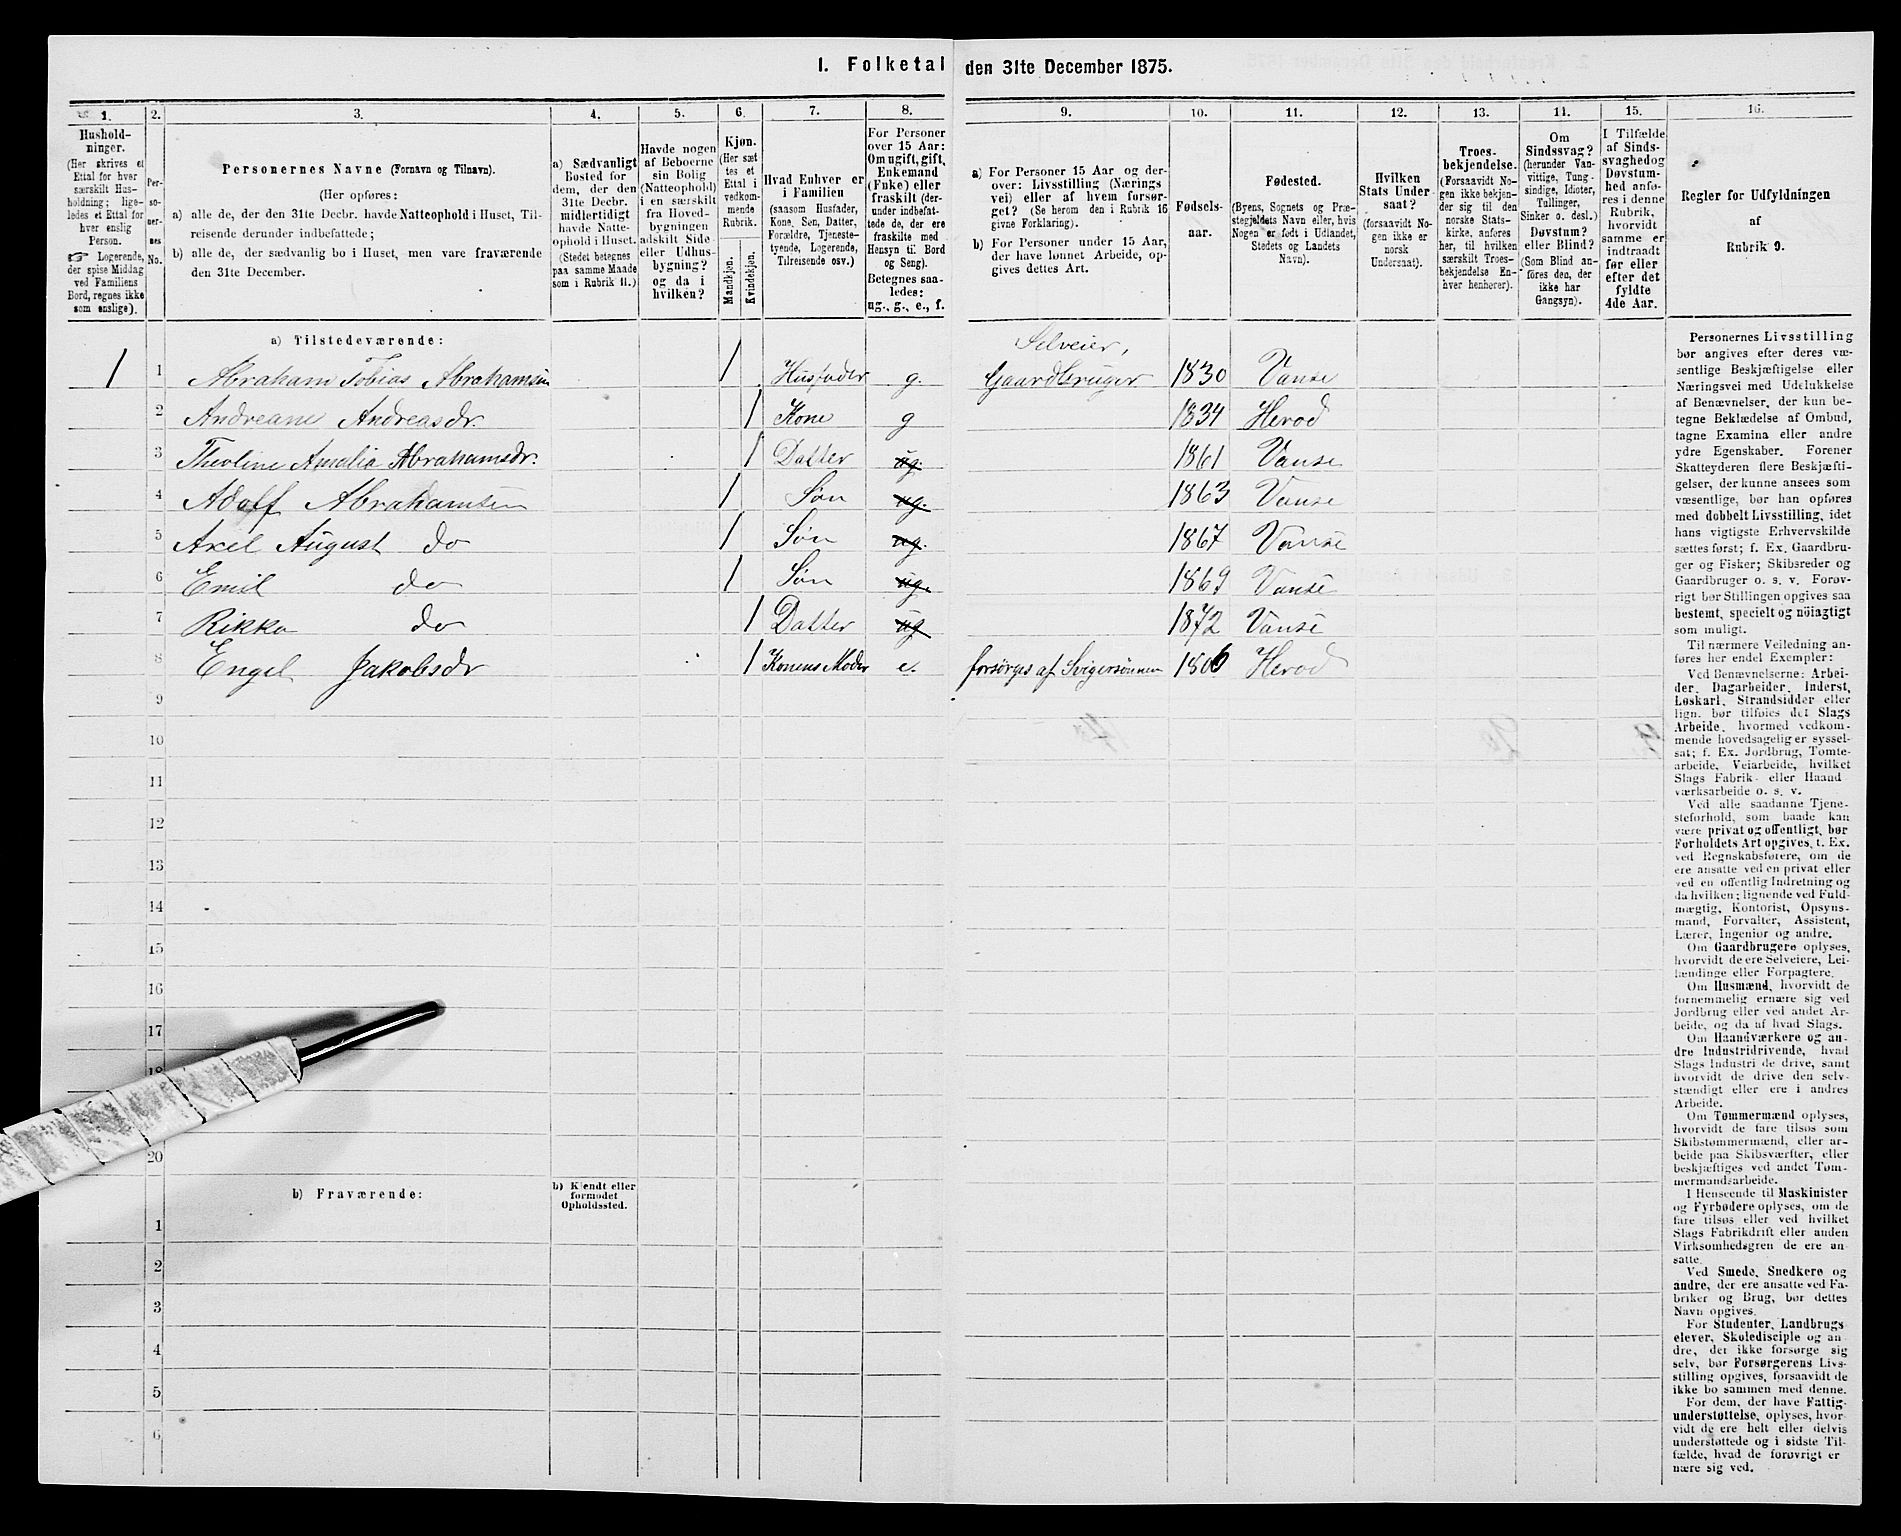 I. Folketal den 31te December 1875.
1. 2. 3. 4. 5. 6. 7. 8. 9. 10. 11. 12. 13. 14. 15. 16.
Hushold-
ninger.
(Her skrives et
Ettal for hver
særskilt Hus-
holdning; lige-
ledes et Ettal for
hver enslig
Person.
☞ Logerende,
der spise Middag
ved Familiens
Bord, regnes ikke
som enslige).
Per-
so-
ner-
nes
No.
Personernes Navne (Fornavn og Tilnavn).
(Her opføres:
a) alle de, der den 31te Decbr. havde Natteophold i Huset, Til-
reisende derunder indbefattede;
b) alle de, der sædvanlig bo i Huset, men vare fraværende
den 31te December.
a) Sædvanligt
Bosted for
dem, der den
31te Decbr.
midlertidigt
havde Natte-
ophold i Huset.
(Stedet betegnes
paa samme Maade
som i Rubrik 11.)
Havde nogen
af Beboerne
sin Bolig
(Natteophold)
i en særskilt
fra Hoved-
bygningen
adskilt Side-
eller Udhus-
bygning?
og da i
hvilken?
Kjøn.
(Her sæt
tes et
Ettal i
vedkom-
mende
Rubrik.
Mandkjøn.
Kvindekjøn.
Hvad Enhver er
i Familien
(saasom Husfader,
Kone, Søn, Datter,
Forældre, Tjeneste-
tyende, Logerende,
Tilreisende osv.)
For Personer
over 15 Aar:
Om ugift, gift,
Enkemand
(Enke) eller
fraskilt (der-
under indbefat-
tede de, der ere
fraskilte med
Hensyn til Bord
og Seng).
Betegnes saa-
ledes:
ug., g., e., f.
a) For Personer 15 Aar og der-
over: Livsstilling (Nærings
vei) eller af hvem forsør-
get? (Se herom den i Rubrik 16
givne Forklaring).
b) For Personer under 15 Aar,
der have lønnet Arbeide, op-
gives dettes Art.
Fødsels-
aar.
Fødested.
(Byens, Sognets og Præ-
stegjeldets Navn eller, hvis
Nogen er født i Udlandet,
Stedets og Landets
Navn).
Hvilken
Stats Under-
saat?
(forsaavidt No-
gen ikke er
norsk
Undersaat).
Troes-
bekjendelse.
(Forsaavidt No-
gen ikke bekjen-
der sig til den
norske Stats-
kirke, anføres
her, til hvilken
særskilt Troes-
bekjendelse En-
hver henhører).
Om
Sindssvag?
(herunder Van-
vittige, Tung-
sindige, Idioter,
Tullinger,
Sinker o. desl.)
Døvstum?
eller Blind?
(Som Blind an-
føres den, der
ikke har
Gangsyn).
I Tilfælde
af Sinds-
svaghed og
Døvstum-
hed anfø-
res i denne
Rubrik,
hvorvidt
samme er
indtraadt
før eller
efter det
fyldte
4de Aar.
Regler for Udfyldningen
af
Rubrik 9.
a) Tilstedeværende:
Selveier,
1 1 Abraham Tobias Abrahamsen 1 Husfader g. Gaardbruger 1830 Vanse
2 Andreane Andreasdr. 1 Kone g 1834 Herod
3 Theoline Amalia Abrahamsdr. 1 Datter ug. 1861 Vanse
4 Adolf Abrahamsen 1 Søn ug. 1863 Vanse
5 Axel August do 1 Søn ug. 1867 Vanse
6 Emil do 1 Søn ug. 1869 Vanse
7 Rikka do 1 Datter ug 1872 Vanse
8 Engel Jakobsdr 1 Konens Moder e. forsørges af Svigersønnen 1806 Herod
9
10
11
12
13
14
15
16
17
18
20
b) Fraværende:
b) Kjendt eller
formodet
Opholdssted.
1
2
3
4
5
6
Personernes Livsstilling
bør angives efter deres væ-
sentlige Beskjæftigelse eller
Næringsvei med Udelukkelse
af Benævnelser, der kun be-
tegne Beklædelse af Ombud,
tagne Examina eller andre
ydre Egenskaber. Forener
Skatteyderen flere Beskjæfti-
gelser, der kunne ansees som
væsentlige, bør han opføres
med dobbelt Livsstilling, idet
hans vigtigste Erhvervskilde
sættes først; f. Ex. Gaardbru-
ger og Fisker; Skibsreder og
Gaardbruger o. s. v. Forøv-
rigt bør Stillingen opgives saa
bestemt, specielt og nøiagtigt
som muligt.
Til nærmere Veiledning an-
føres her endel Exempler:
Ved Benævnelserne: Arbei-
der, Dagarbeider, Inderst,
Løskarl, Strandsidder eller
lign. bør tilføies det Slags
Arbeide, hvormed vedkom-
mende hovedsagelig er syssel-
sat; f. Ex. Jordbrug, Tomte-
arbeide, Veiarbeide, hvilket
Slags Fabrik- eller Haand-
værksarbeide o. s. v.
Ved alle saadanne Tjene-
steforhold, som baade kan
være privat og offentligt, bør
Forholdets Art opgives, f. Ex.
ved Regnskabsførere, om de
ere ansatte ved en privat eller
ved en offentlig Indretning og
da hvilken; lignende ved Fuld-
mægtig, Kontorist, Opsyns-
mand, Forvalter, Assistent,
Lærer, Ingeniør og andre.
Om Gaardbrugere oplyses,
hvorvidt de ere Selveiere, Lei-
lændinge eller Forpagtere.
Om Husmænd, hvorvidt de
fornemmelig ernære sig ved
Jordbrug eller ved andet Ar-
beide, og da af hvad Slags.
Om Haandværkere og an-
dre Industridrivende, hvad
Slags Industri de drive, samt
hvorvidt de drive den selv-
stændigt eller ere i andres
Arbeide.
Om Tømmermænd oplyses,
hvorvidt de fare tilsøs som
Skibstømmermænd, eller ar-
beide paa Skibsværfter, eller
beskjæftiges ved andet Tøm-
mermandsarbeide.
I Henseende til Maskinister
og Fyrbødere oplyses, om de
fare tilsøs eller ved hvilket
Slags Fabrikdrift eller anden
Virksomhedsgren de ere an-
satte.
Ved Smede, Snedkere og
andre, der ere ansatte ved Fa-
briker og Brug, bør dettes
Navn opgives.
For Studenter, Landbrugs-
elever, Skoledisciple og an-
dre, der ikke forsørge sig
selv, bør Forsørgerens Livs-
stilling opgives, forsaavidt de
ikke bo sammen med denne.
For dem, der have Fattig-
understøttelse, oplyses, hvor-
vidt de ere helt eller delvis
understøttede og i sidste Til-
fælde, hvad de forøvrigt er-
nære sig ved.